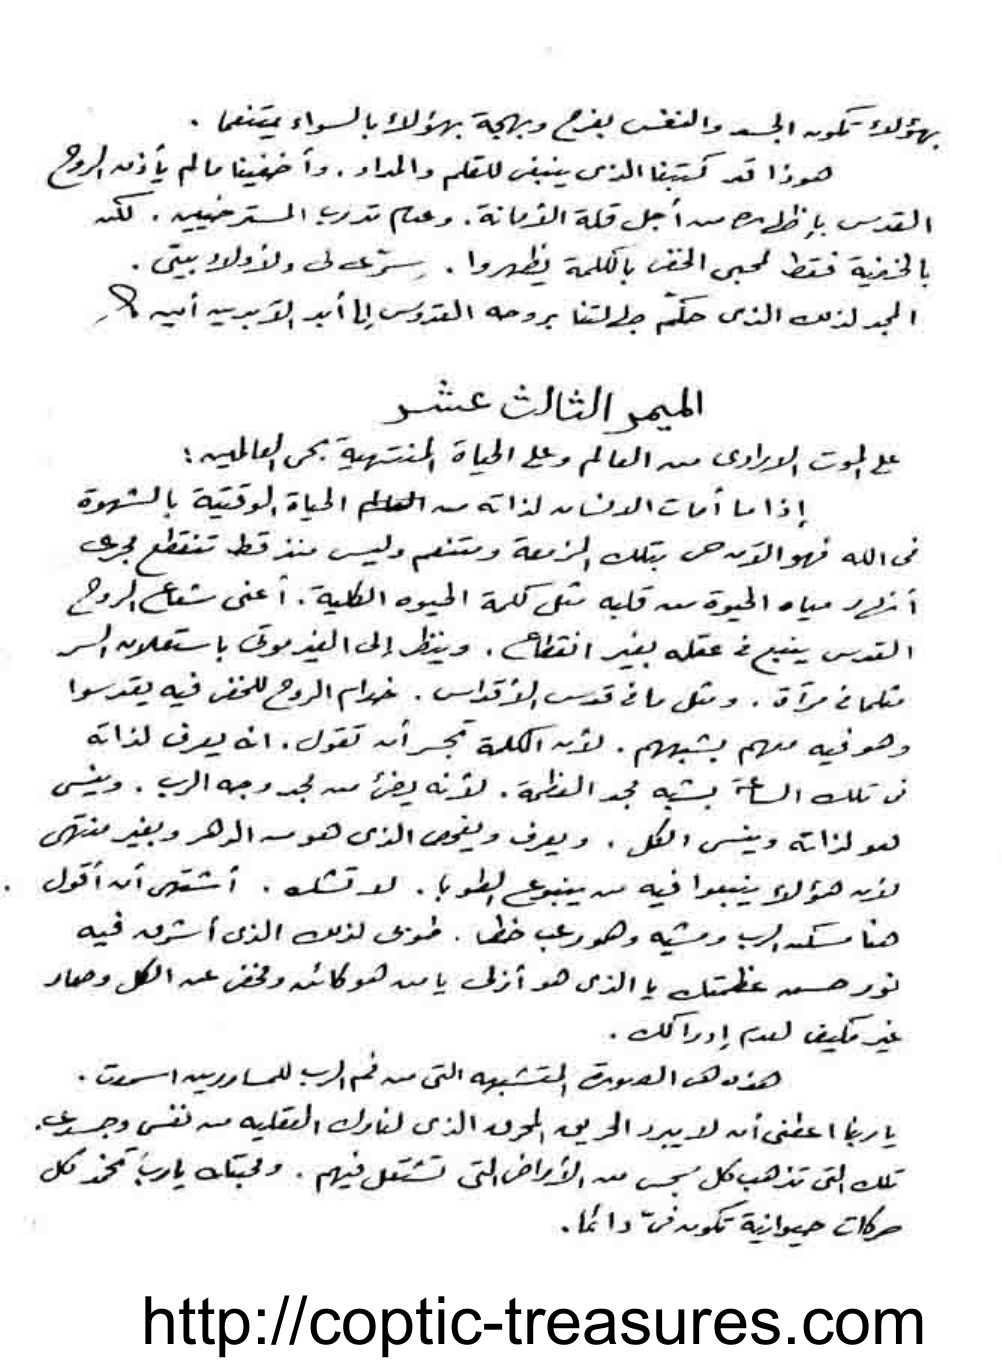 بهؤلاء تكون الجسد والنفس بفرح وبهجة بهؤلاء بالسواء يتنعما .
هوذا قد كتبنا الذى ينبغى للقلم والمداد . وأخفينا مالم يأذن الروح
القدس بإظهاره من أجل قلة الأمانة . وعدم تدرب المسترخيين . لكن
بالخفية فقط لمحبى الخفى بالكلمة يظهروا . سرّى لى ولأولاد بيتى .
المجد لذلك الذى حكّم جهالتنا بروحه القدوس إلى أبد الآبدين أمين
الميمر الثالث عشر
على الموت الارادى من العالم وعلى الحياة المنتهية بحى العالمين :
إذا ما أمات الانسان لذاته من الحياة الوقتية بالشهوة
فى الله فهو الآن حى بتلك المزمعة ومتنعم وليس منذ قط تنقطع مجرى
أنهار مياه الحيوة من قلبه مثل كلمة الحيوه الكلية . أعنى شعاع الروح
القدس ينبع فى عقله بغير انقطاع . وينظر إلى الغير موتى باستعلان السر
مثلما فى مرآة . ومثل ما فى قدس الأقداس . خدام الروح للخفى فيه يقدسوا
وهو فيه معهم بشبههم . لأن الكلمة تجسر أن تقول . انه يعرف لذاته
فى تلك الساعة بشبه مجد العظمة . لأنه يضئ من مجد وجه الرب . وينسى
هو لذاته وينسى الكل . ويعرف ويفحص الذى هو من الدهر وبغير منتهى
لأن هؤلاء ينبعوا فيه من ينبوع الطوبا . لا تشك . أشتهى أن أقول .
هنا مسكن الرب ومشيه وهو رعب خطا . طوبى لذلك الذى أشرق فيه
نور حسن عظمتك يا الذى هو أزلى يا من هو كائن ومخفى عن الكل وصار
غير مكيف لعدم إدراكك .
هذه هى الصورة المتشبهه التى من فم الرب للمساررين اسمعت .
يا ربنا اعطنى أن لا يبرد الحريق المحرق الذى لنارك العقليه من نفسى وجسدى .
تلك التى تذهب كل نجس من الأمراض التى تشتعل فيهم . ومحبتك يارب تخمد كل
حركات حيوانية تكون فىّ دائما .
http://coptic-treasures.com